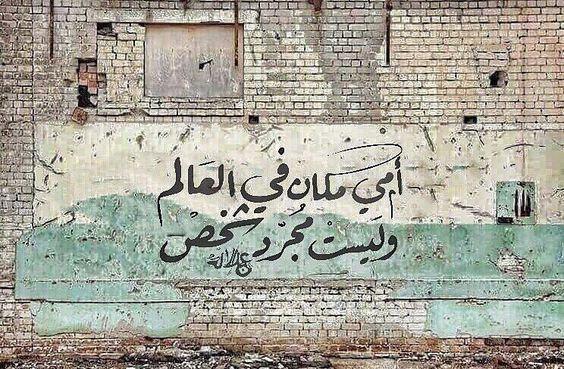 أمي مكان في العَالم
وَليستْ مُجرّد شَخصْ